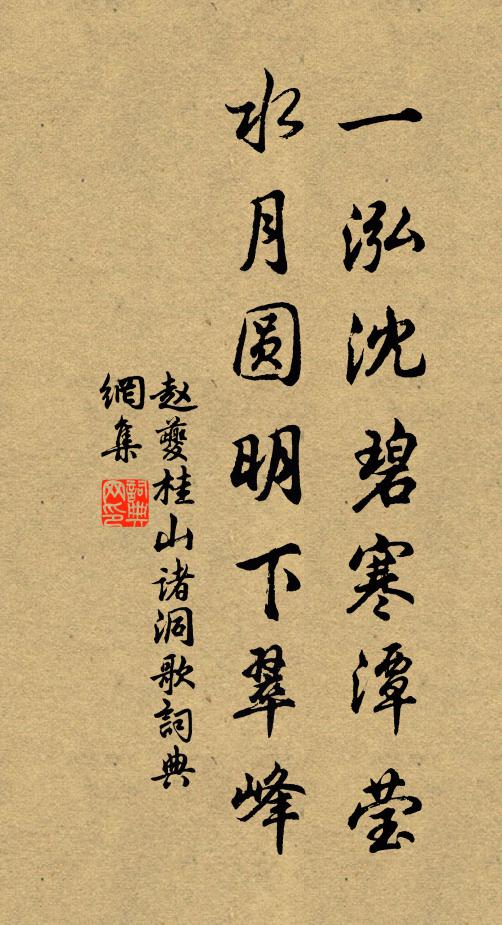 一泓沈碧寒潭莹
水月圆明下翠峰
赵夔桂山诸洞歌詞典
網集
詞典
网印